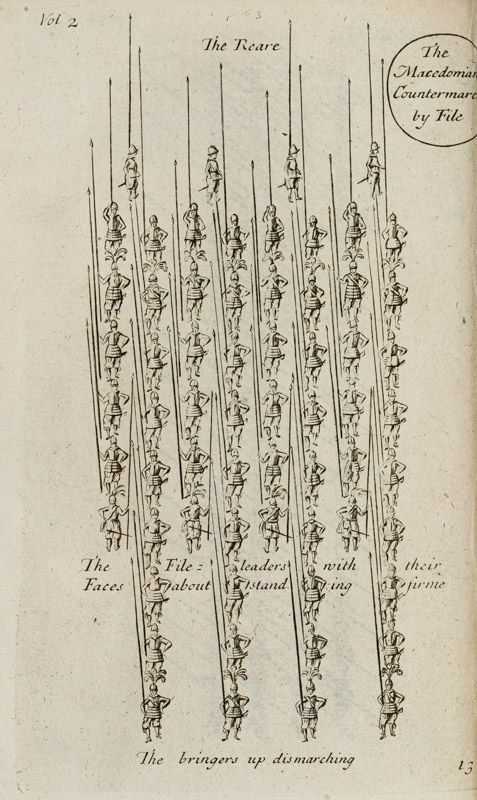 Vol 2
The Reare
The
Macedonian
Countermarc
by File
The File = leaders with their
Faces about stand ing firme
The bringers up dismarching
13